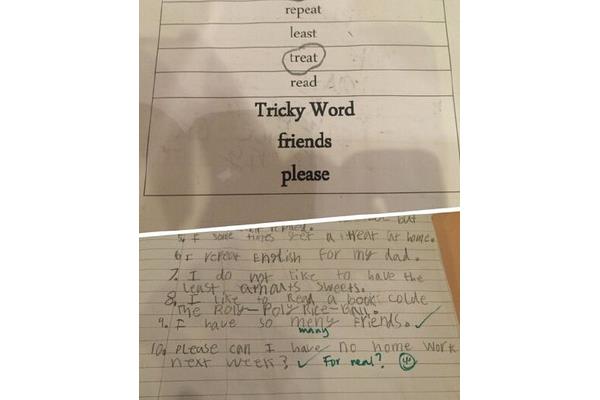 repeat
least
treat
read
Tricky Word
friends
please
but
5. I some times get a treat at home.
6. I repeat English for my dad.
7. I do not like to have the
least amouts sweets.
8. I like to Read a book colde
The Roly-Poly Rice-Ball.
9. I have so meny Friends. ✓
many
10. Please can I have no home work
next week? ✓ For real?